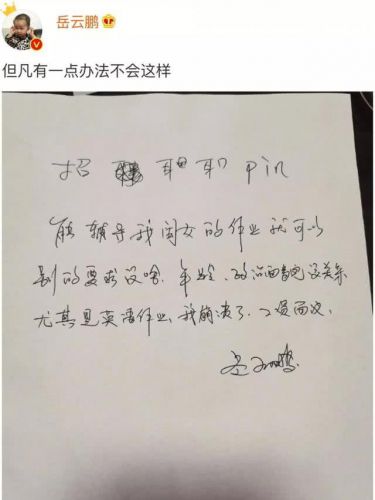 岳云鹏
但凡有一点办法不会这样
招 耶 职 pin
能辅导我闺女的作业就可以
别的要求没啥、年龄、政治面貌没关系
尤其是英语作业、我崩溃了、工资面议
岳云鹏